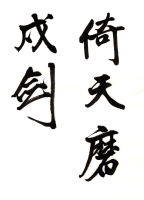 倚天磨
成剑